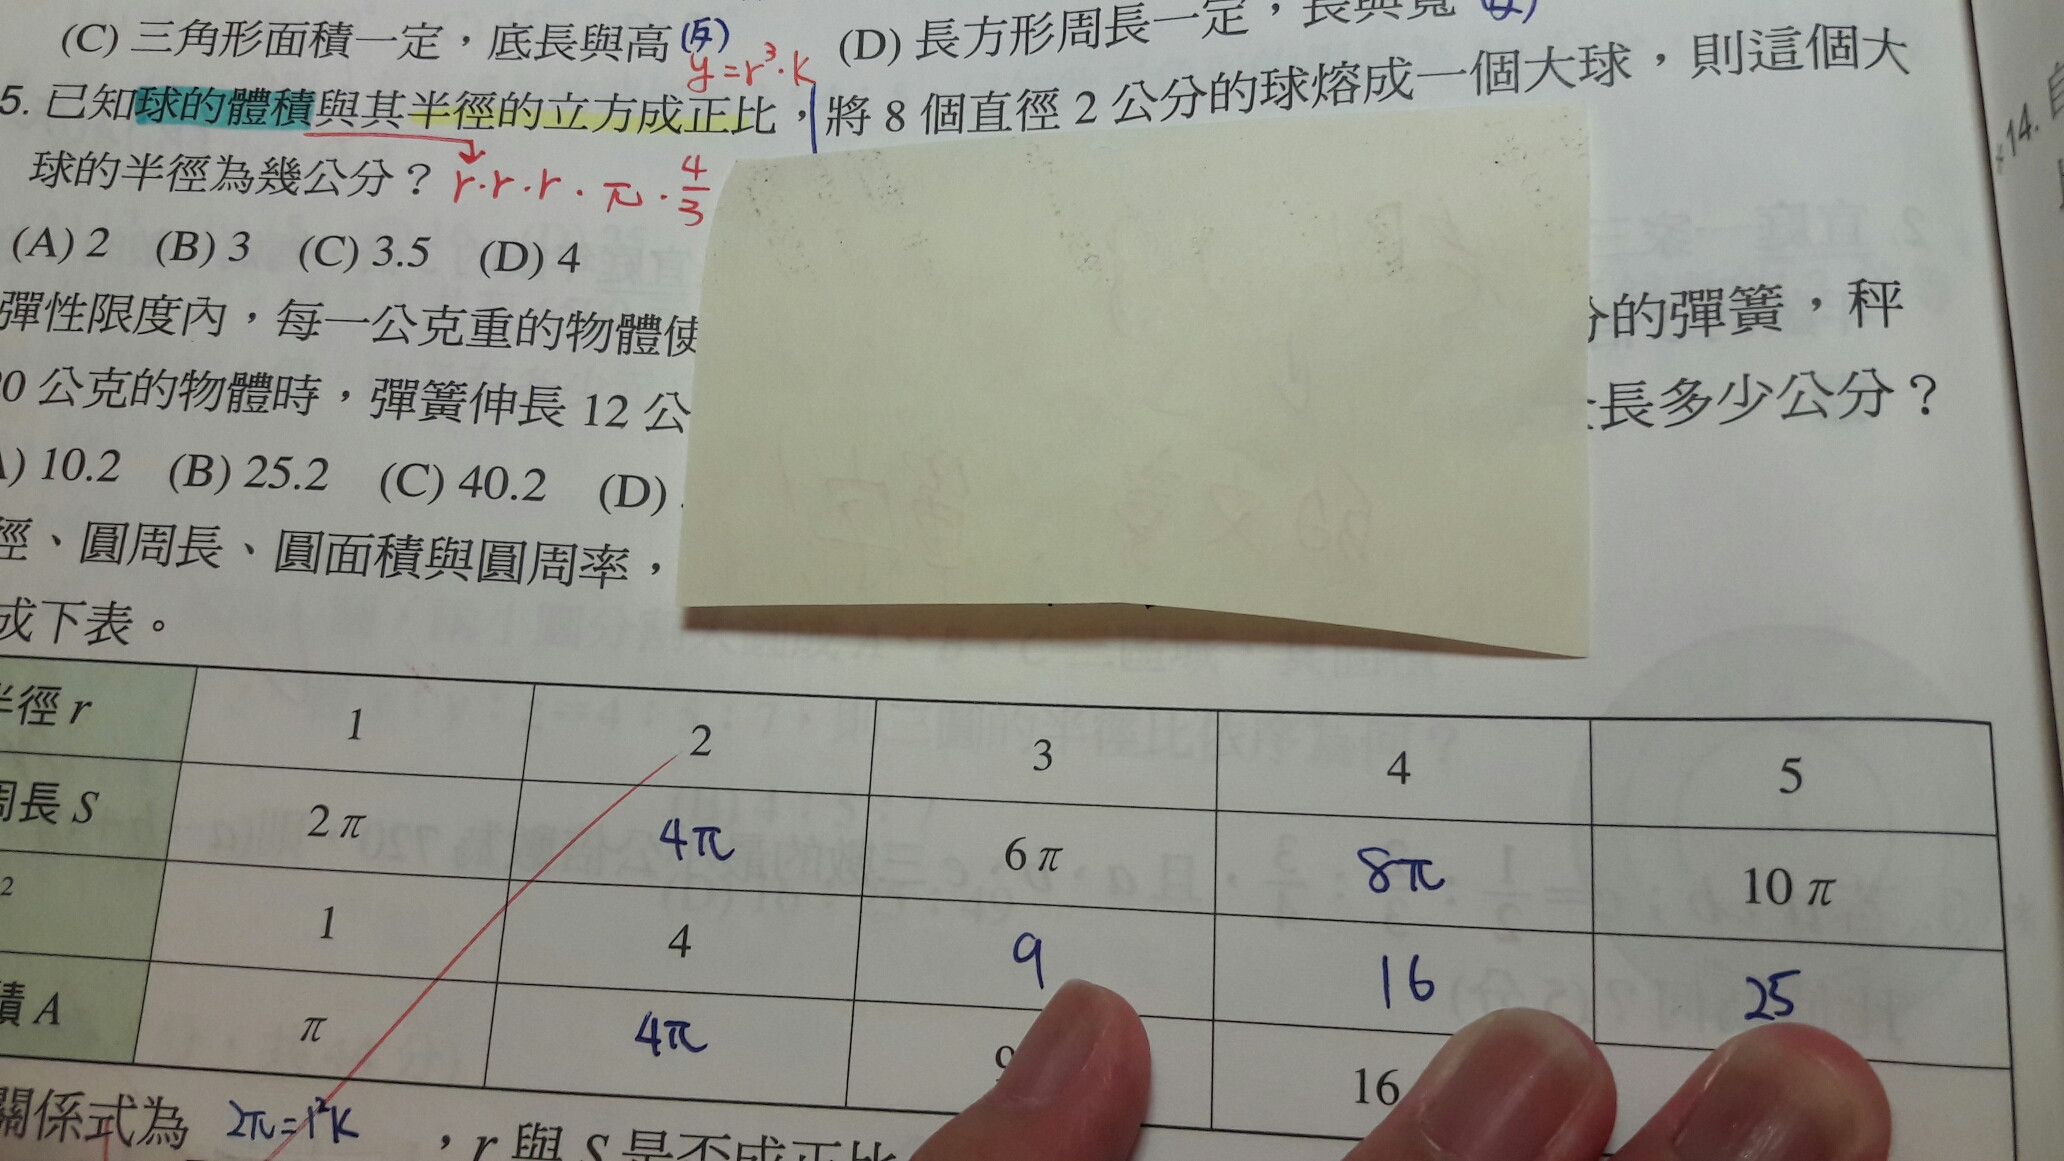 (C) 三角形面積一定，底長與高 (反) (D) 長方形周長一定，長與寬
y=r³·k
5. 已知球的體積與其半徑的立方成正比，將 8 個直徑 2 公分的球熔成一個大球，則這個大
球的半徑為幾公分？ r·r·r·π·4/3
(A) 2 (B) 3 (C) 3.5 (D) 4
彈性限度內，每一公克重的物體使
的彈簧，秤
0 公克的物體時，彈簧伸長 12 公
長多少公分？
) 10.2 (B) 25.2 (C) 40.2 (D)
徑、圓周長、圓面積與圓周率，
成下表。
半徑 r 1 2 3 4 5
周長 S 2π 4π 6π 8π 10π
2 1 4 9 16 25
積 A π 4π 9 16
關係式為 2π=1²K ，r 與 S 是否成正比
14.